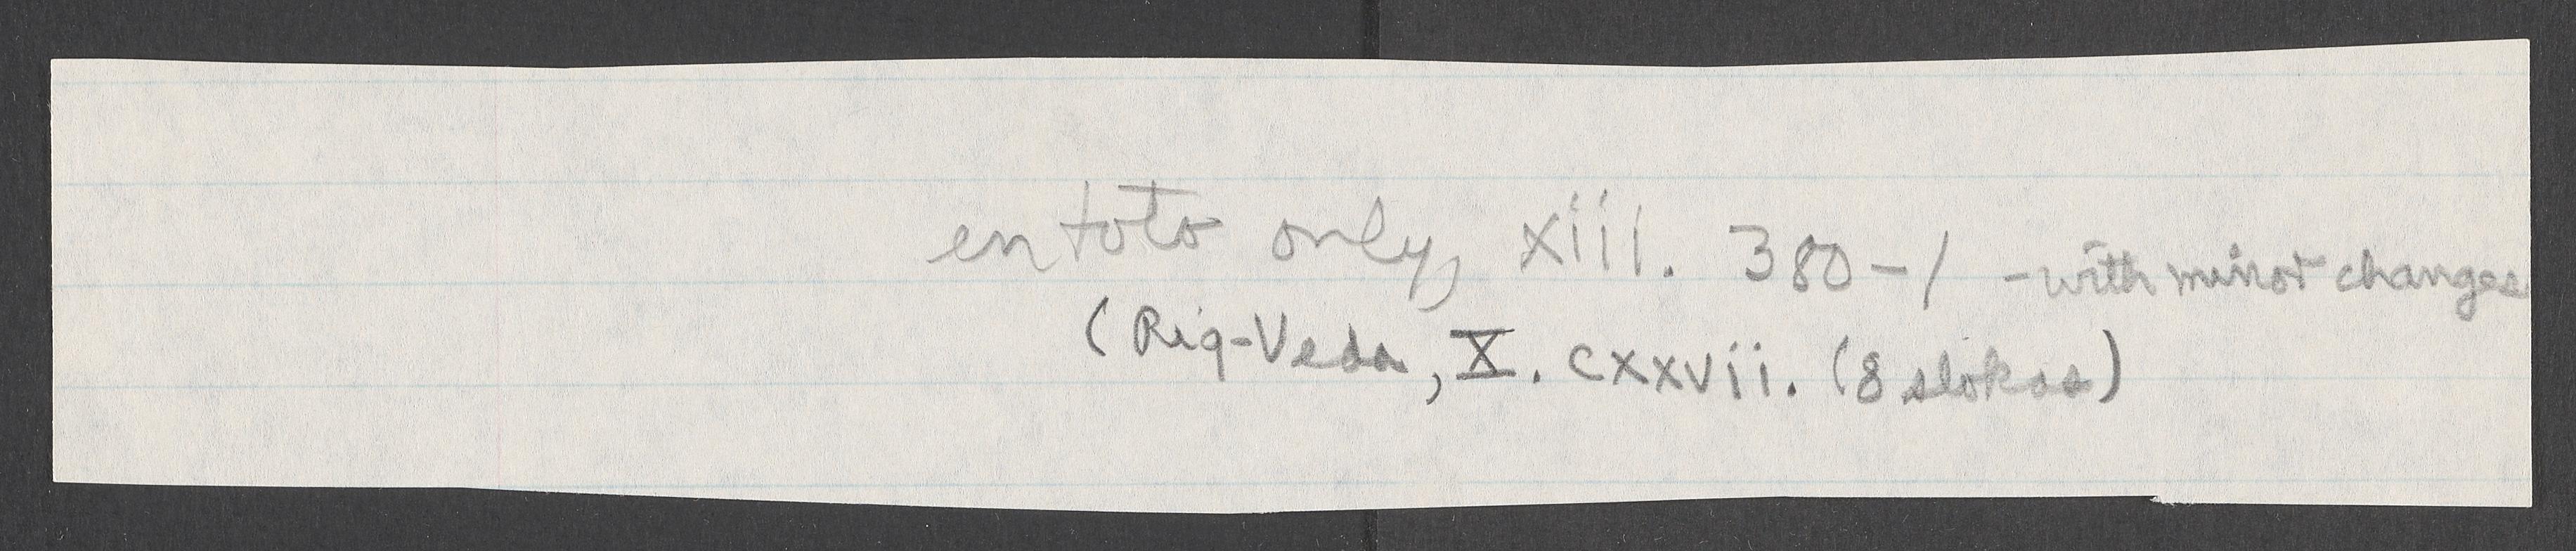 en toto only, xiii. 380-1 - with minor changes
(Rig-Veda, X. cxxvii. (8 slokas)